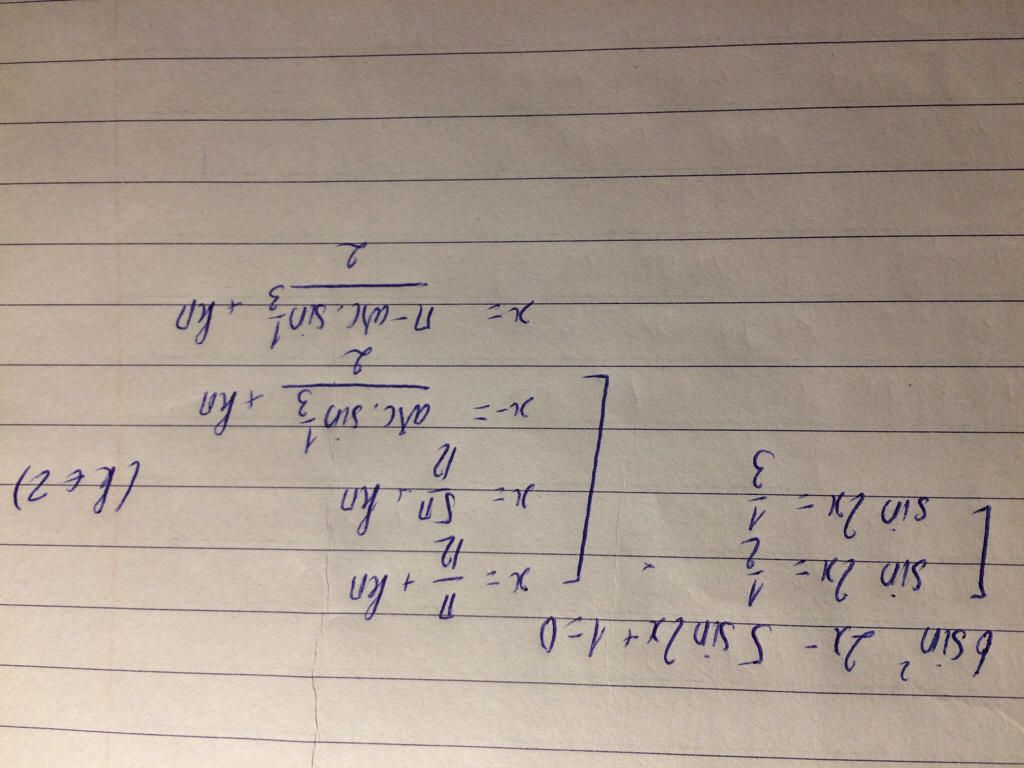 6 sin² 2x - 5 sin 2x + 1 = 0
[ sin 2x = 1/2
sin 2x = 1/3
[ x = π/12 + kπ
x = 5π/12 + kπ (k ∈ Z)
x = arc.sin 1/3 / 2 + kπ
x = π - arc.sin 1/3 / 2 + kπ